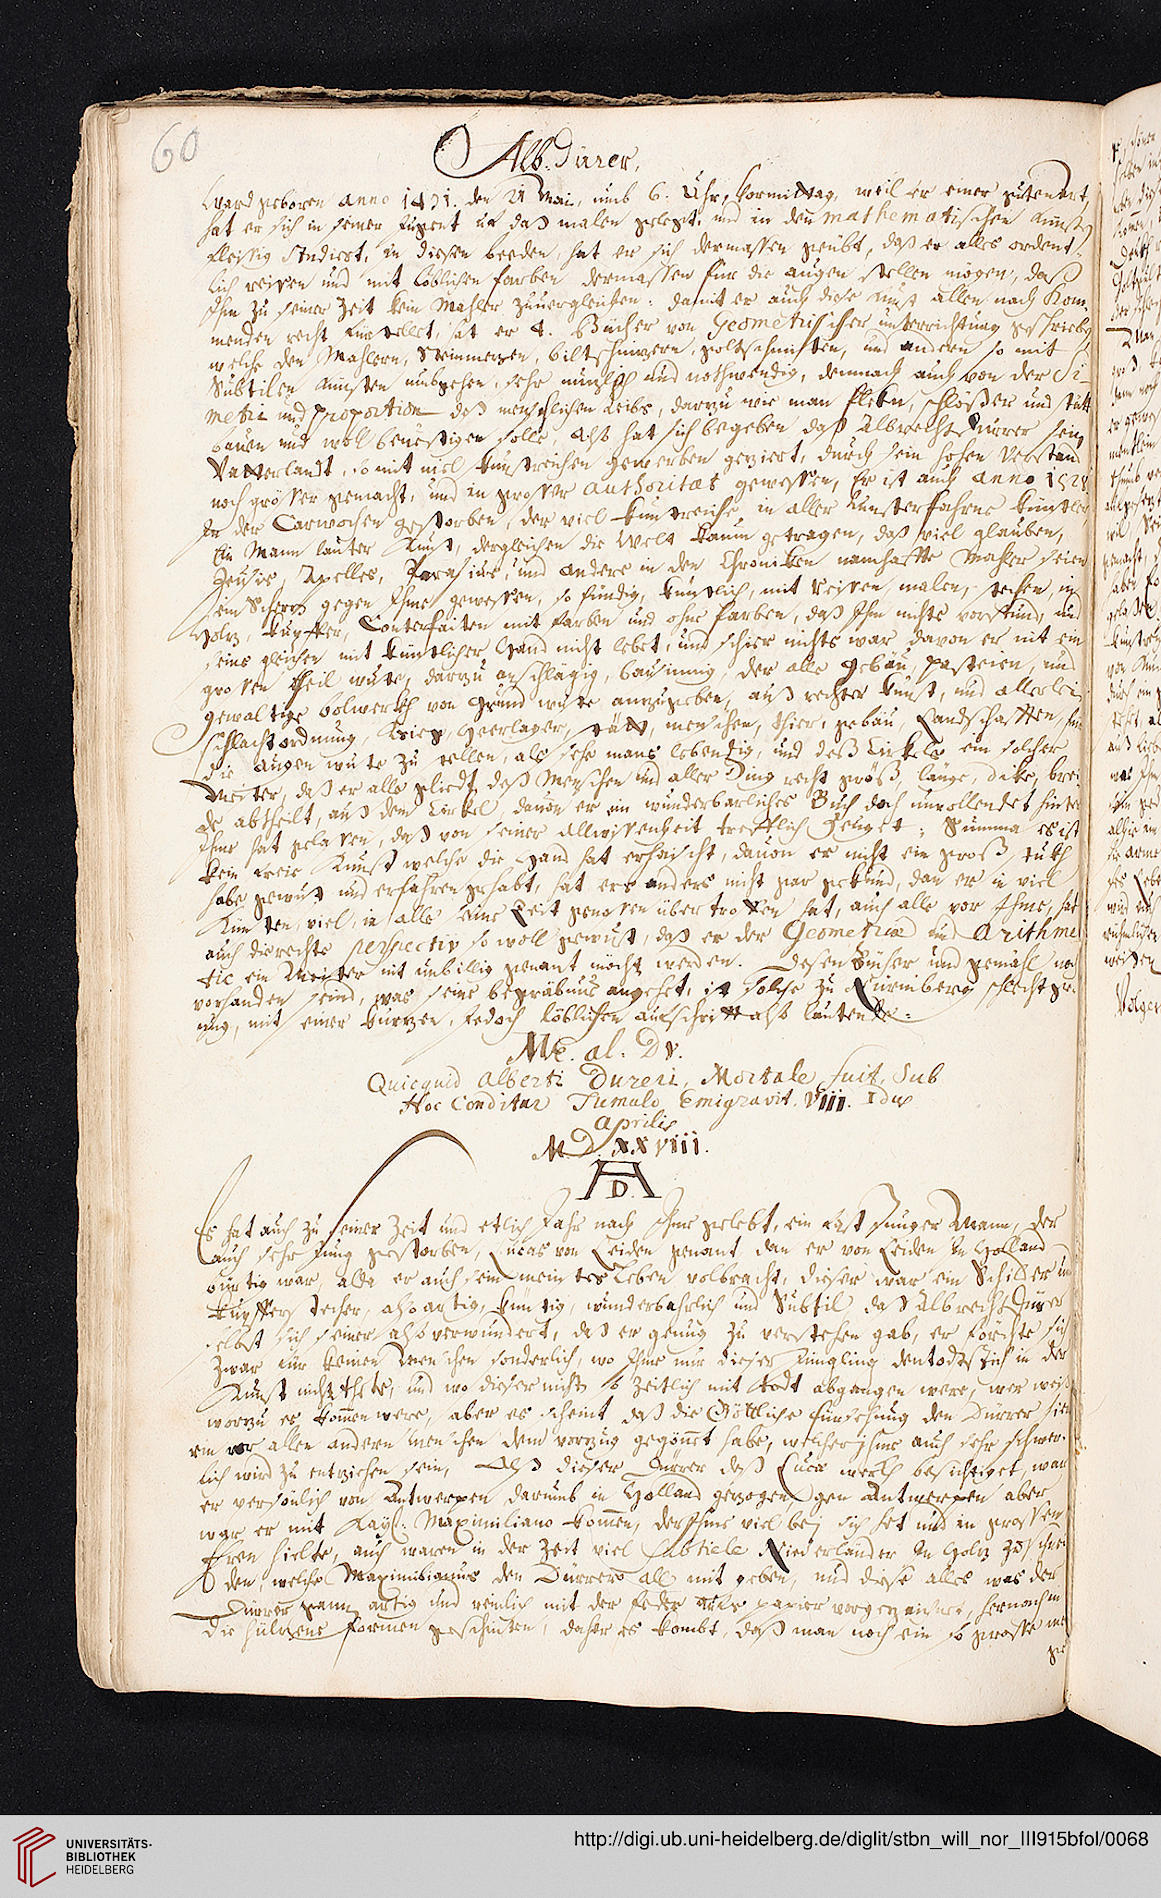 60
Alb. Dürer,
Ward geboren anno 1471. den 21 Mai, umb 6. Uhr, Vormittag, weil er einer guten art,
hat er sich in seiner Jugent uf daß malen gelegt, und in den mathematischen Künst
fleissig Studiert, in diesen beeden, hat er sich dermassen geübt, daß er alles ordent
lich reissen und mit löblichen farben dermassen für die augen stellen mögen, daß
Ihm zu seiner Zeit kein Mahler zuvergleichen: damit er auch diese Kunst allen nach kom,
menden recht fürstellet, hat er 4. Bücher von Geometrischer unterrichtung geschrieb,
welche den Mahlern, Steinmezen, biltschnizern, goltschmiden, und andern so mit
Subtilen Künsten umbgehen, sehr nüzlich und nothwendig, demnach auch von der Si-
metri und Proportion deß menschlichen leibs, darzu wie man fleken, schlösser und stätt
bauen und woll bevestigen solle, also hat sich begeben daß Albrecht Dürrer sein
Vatterlandt, so mit viel kunstreichen gewerben geziert, durch sein hohen Verstand
noch grösser gemacht, und in grosser authoritaet gewessen, Er ist auch anno 1528
In der Carwochen gestorben, der viel kunstreiche, in aller Kunst erfahrne künstler
Ein Mann lauter Kunst, dergleichen die Welt kaum getragen, daß viel glauben,
Zeusis, Apelles, Parasius, und andere in den Chroniken namhafte Mahler seien
ein Scherz gegen Ihme gewessen, so fündig, künstlich, mit reissen, malen, stechen, in
Holz, kupffer, Conterfaiten mit farben und ohne farben, daß Ihm nichts vorstund, und
seins gleichen mit künstlicher Hand nicht lebet, und schier nichts war davon er nit ein
grossen theil wuste, darzu anschlägig, bausinnig, der alle gebäu, pasteien, und
gewaltige bolwerkh von grund wuste anzugeben, auß rechter kunst, und allerlei
schlachtordnung, Krieg, Heerlager, Stätt, menschen, thier, gebäu, Landschafften, für
die augen wuste zu stellen, als sehe mans lebendig, und deß Cirkels ein solcher
Meister, daß er alle glieder deß Menschen und aller Ding recht größ, länge, dike, brei
te abtheilt, auß dem Cirkel, davon er ein wunderbarliches Buch doch unvollendet hinter
Ihme hat gelassen, daß von seiner allwissenheit trefflich Zeuget; Summa es ist
kein freie Kunst welche die Hand hat erheischt, davon er nicht ein groß stukh
habe gewust und erfahren gehabt, hat ers anders nicht gar gekund, dan er in viel
Künsten, viel, in alle seine Zeit genossen übertroffen hat, auch alle vor Ihme, hat
auch die rechte perspectiv so woll gewust, daß er der Geometriae und Arithme
tic ein Meister nit unbillig genant mocht werden. Dessen Bücher und gemähl noch
vorhanden seind, was seine begräbnus angehet, ist solche zu Nürmberg schlecht ge-
nug, mit einer kurzen, Jedoch löblichen aufschrifft also lautende:
Me. al. Du.
Quicquid Alberti Dureri, Mortale fuit, Sub
Hoc Conditur Tumulo Emigravit. VIII. Idus
Aprilis
M.D.XXVIII.
AD
Es hat auch zu seiner Zeit und etlich Jahr nach Ihme gelebt, ein fast Junger Mann, der
auch sehr Jung gestorben, Lucas von Leiden genant, dan er von Leiden In Holland
bürtig war, alda er auch sein meinstes Leben volbracht, dieser war ein Schilder und
kupfferstecher, also artig, künstig, wunderbahrlich und Subtil, daß Albrecht Dürer
selbst sich seiner also verwundert, daß er genug zu verstehen gab, er förchte sich
Zwar für keinen Menschen sonderlich, wo Ihme nur dieser Jüngling den todtstich in der
Kunst nicht thete, und wo dieser nicht so zeitlich mit todt abgangen were, wer weiß
worzu es kommen were, aber es scheint daß die Göttliche fürsehung den Dürrer hier
rin vor allen andern Menschen dem vorzug gegönnet habe, welcher Ihme auch sehr schwer-
lich wird zu entziehen sein, Alß dieser Dürrer deß Lucae werkh besichtiget, war
er persönlich von Antwerpen darumb in Holland gezogen, gen Antwerpen aber
war er mit Kays: Maximiliano kommen, der Ihme viel bej sich het und in grossen
Ehren hielte, auch waren in der Zeit viel Subtiele Niederländer In Holz zu schnei
den, welche Maximilianus den Dürrer all mit geben, und diese alles was der
Dürrer ganz artig und reinlich mit der feder aufs papier vorgezeichnet, hernach in
die hülzene formen geschnitten, daher es kombt, daß man noch ein so grosse me
ge
UNIVERSITÄTS-
BIBLIOTHEK
HEIDELBERG
http://digi.ub.uni-heidelberg.de/diglit/stbn_will_nor_III915bfol/0068